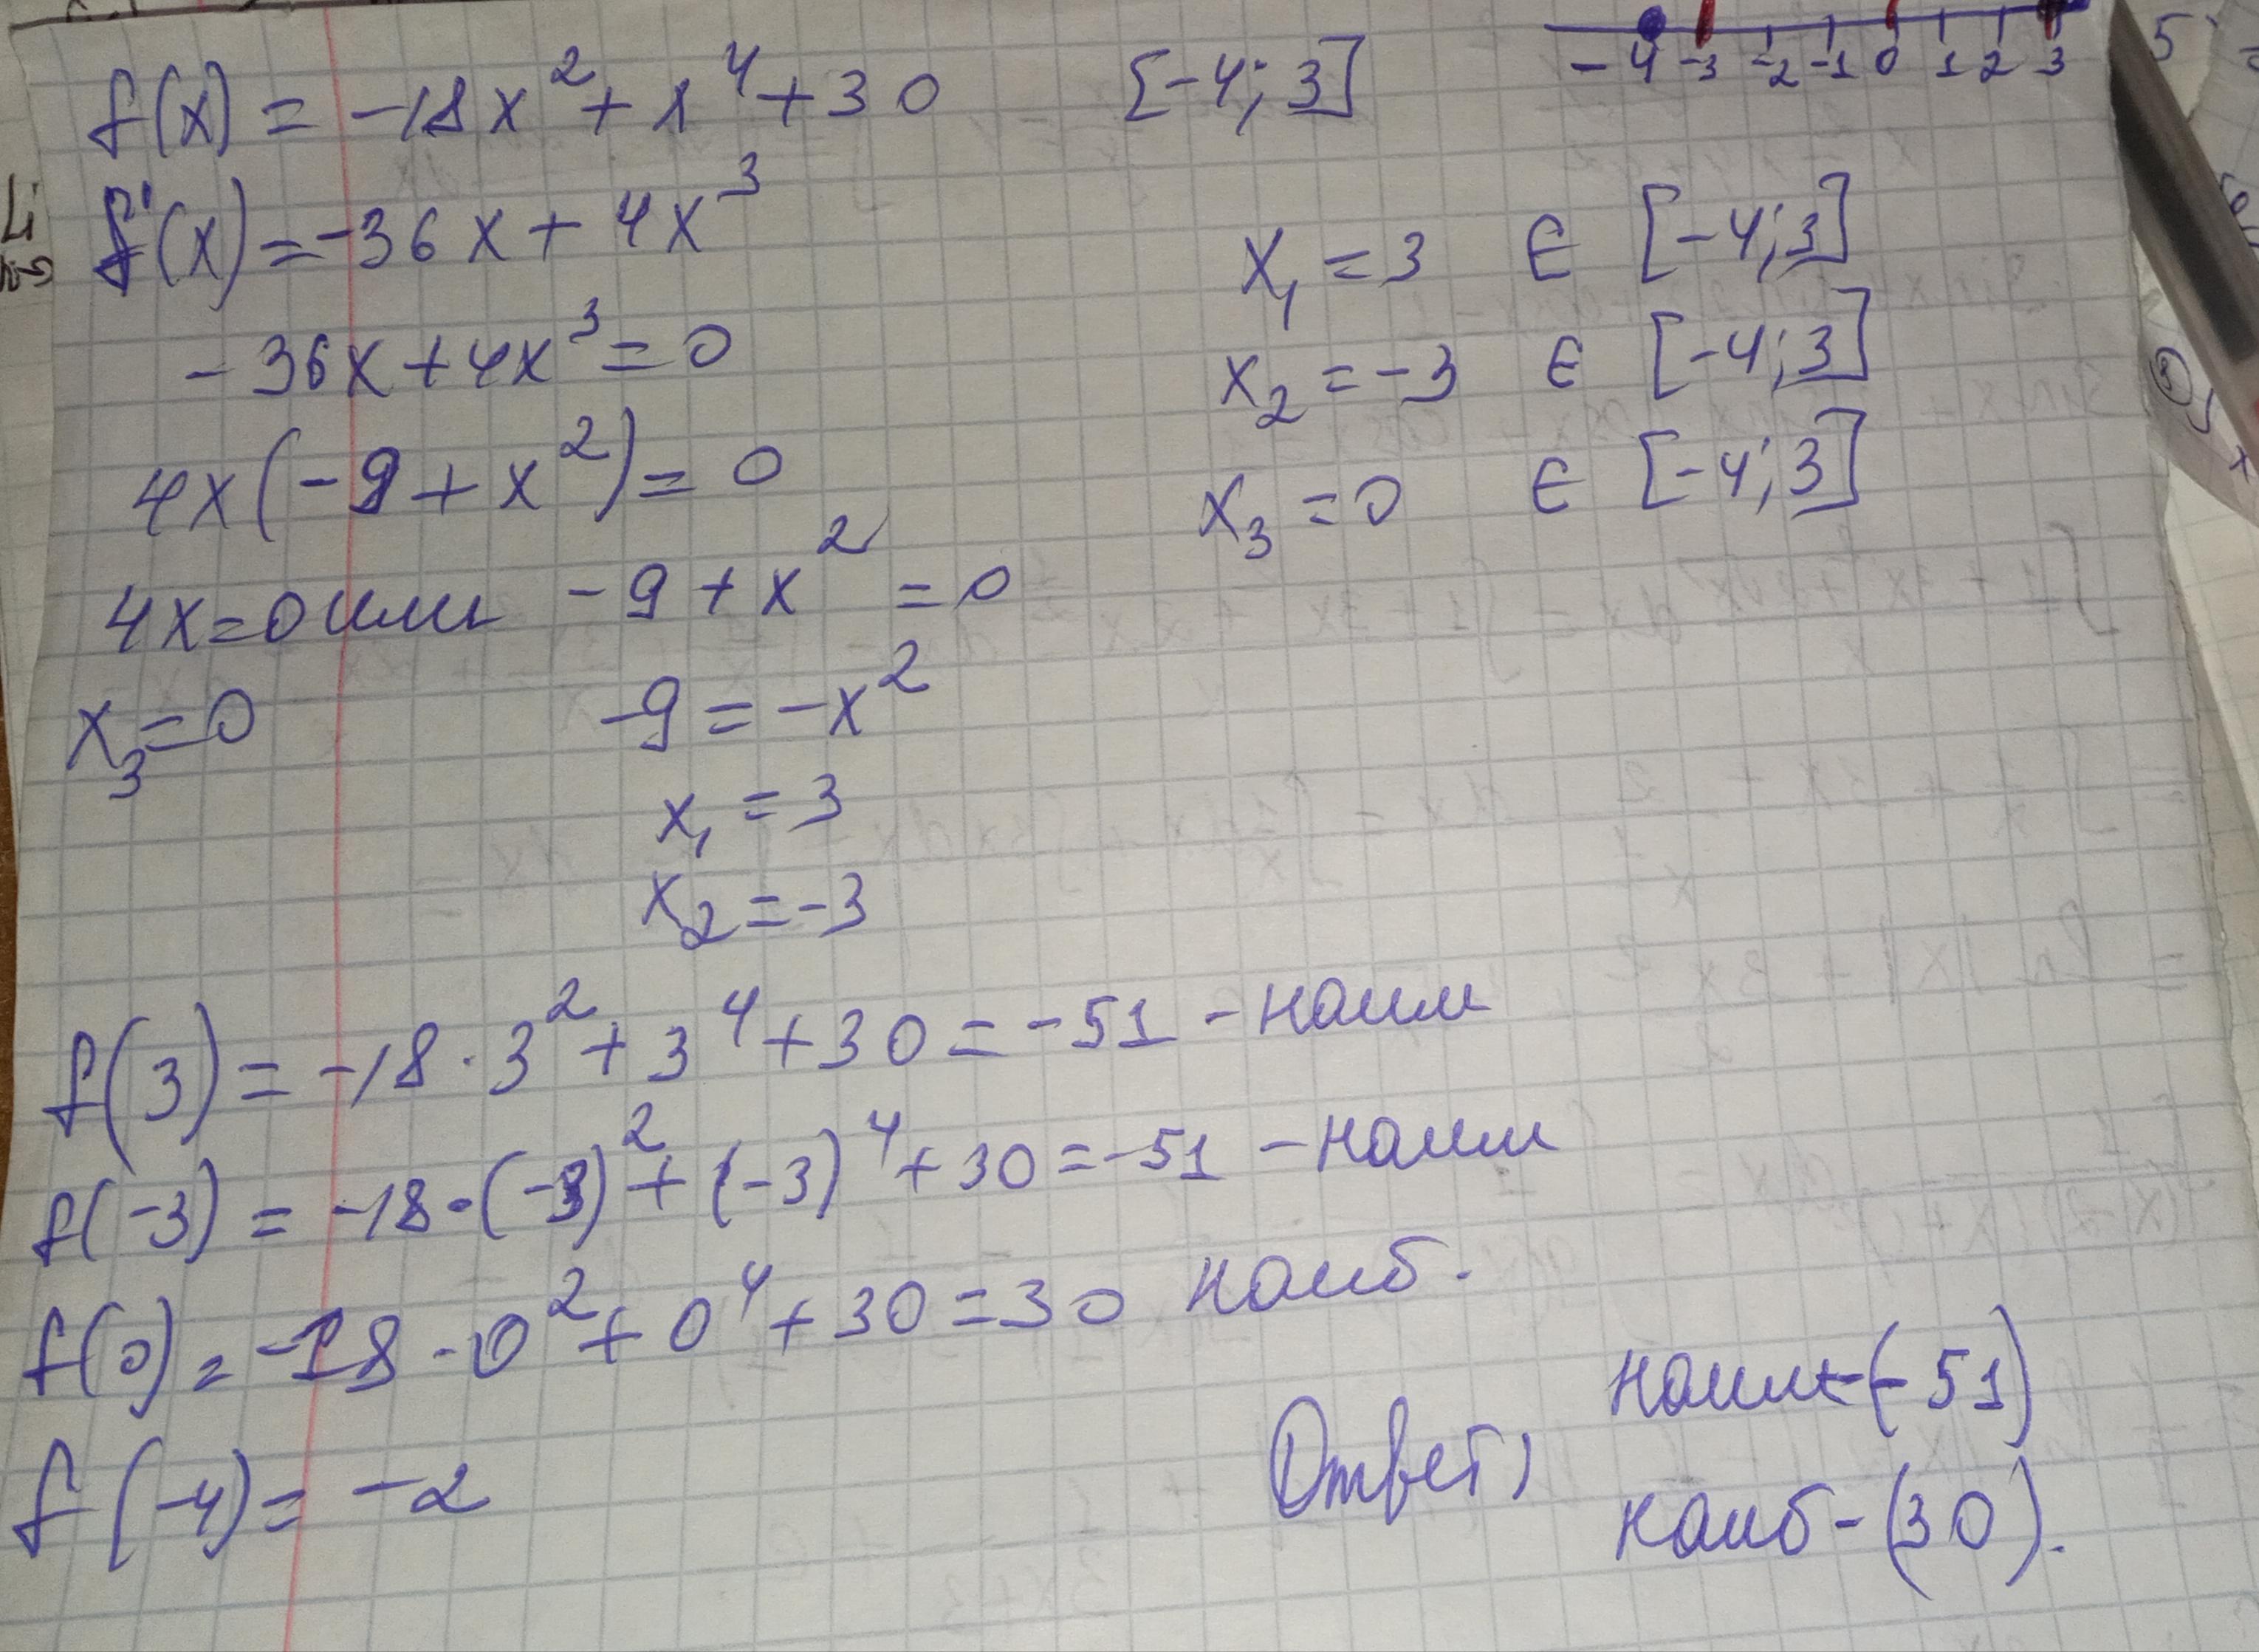 f(x) = -18x² + x⁴ + 30 [-4; 3]
-4 -3 -2 -1 0 1 2 3
f'(x) = -36x + 4x³
-36x + 4x³ = 0
4x(-9 + x²) = 0
4x = 0 или -9 + x² = 0
x₃ = 0 -9 = -x²
x₁ = 3
x₂ = -3
x₁ = 3 ∈ [-4; 3]
x₂ = -3 ∈ [-4; 3]
x₃ = 0 ∈ [-4; 3]
f(3) = -18 · 3² + 3⁴ + 30 = -51 - наим
f(-3) = -18 · (-3)² + (-3)⁴ + 30 = -51 - наим
f(0) = -18 · 0² + 0⁴ + 30 = 30 наиб.
f(-4) = -2
Ответ, наим - (-51)
наиб - (30).
5